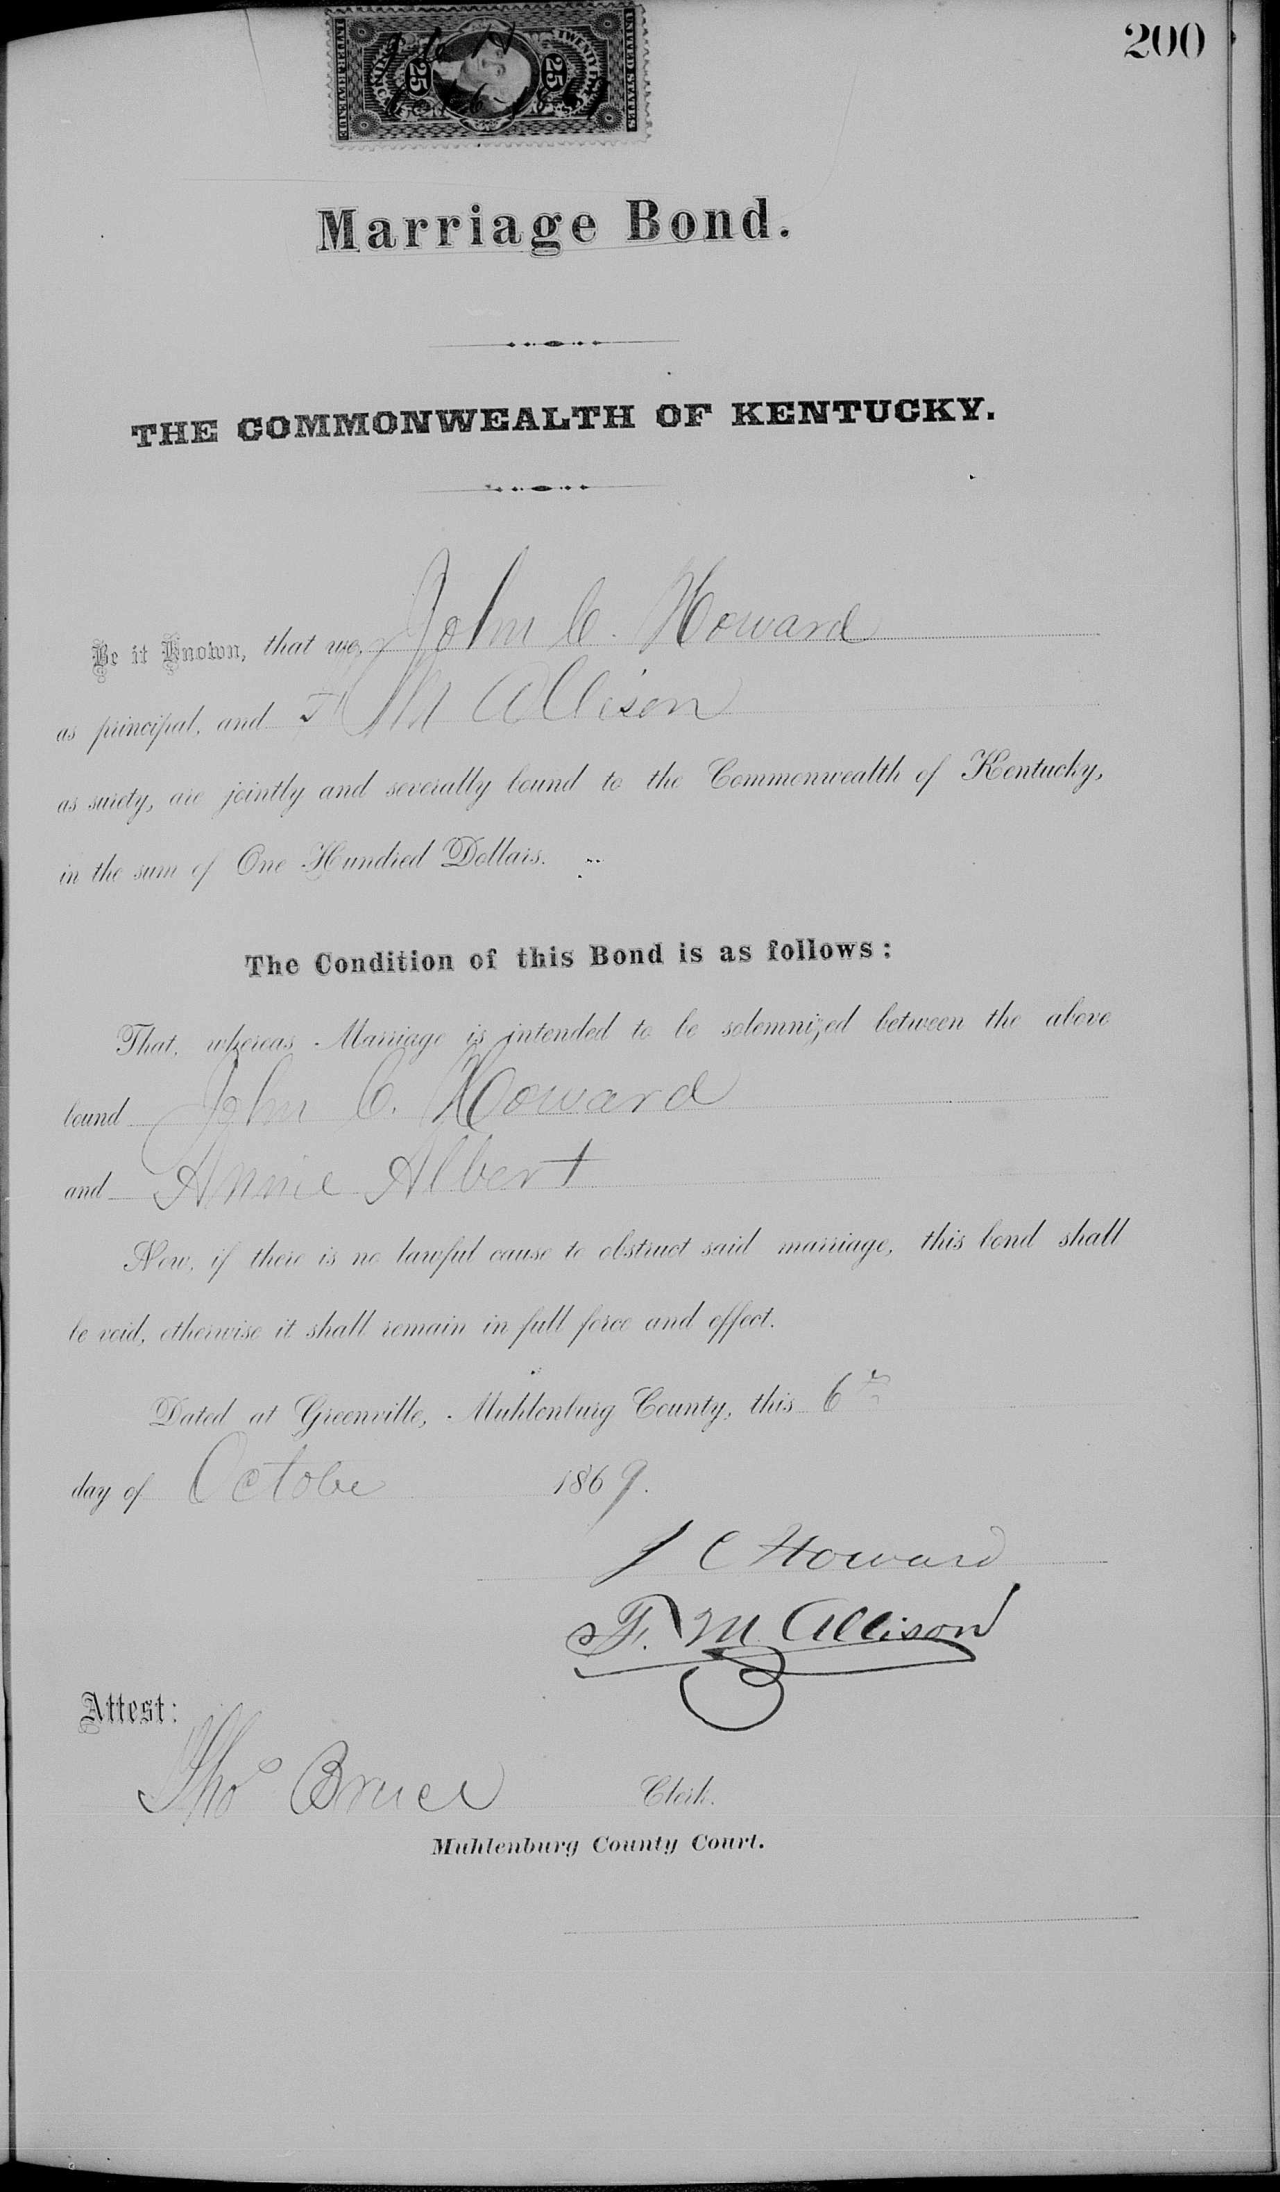 200
INTER. REVENUE
UNITED STATES
TWENTY FIVE CENTS
25
25
J C H
Oct 6 1869
Marriage Bond.
THE COMMONWEALTH OF KENTUCKY.
Be it Known, that we, John C. Howard
as principal, and F M Allison
as surety, are jointly and severally bound to the Commonwealth of Kentucky,
in the sum of One Hundred Dollars.
The Condition of this Bond is as follows:
That, whereas Marriage is intended to be solemnized between the above
bound John C. Howard
and Annie Albert
Now, if there is no lawful cause to obstruct said marriage, this bond shall
be void, otherwise it shall remain in full force and effect.
Dated at Greenville, Muhlenburg County, this 6th
day of Octobe 1869.
J C Howard
F. M. Allison
Attest:
Thos Bruce Clerk.
Muhlenburg County Court.